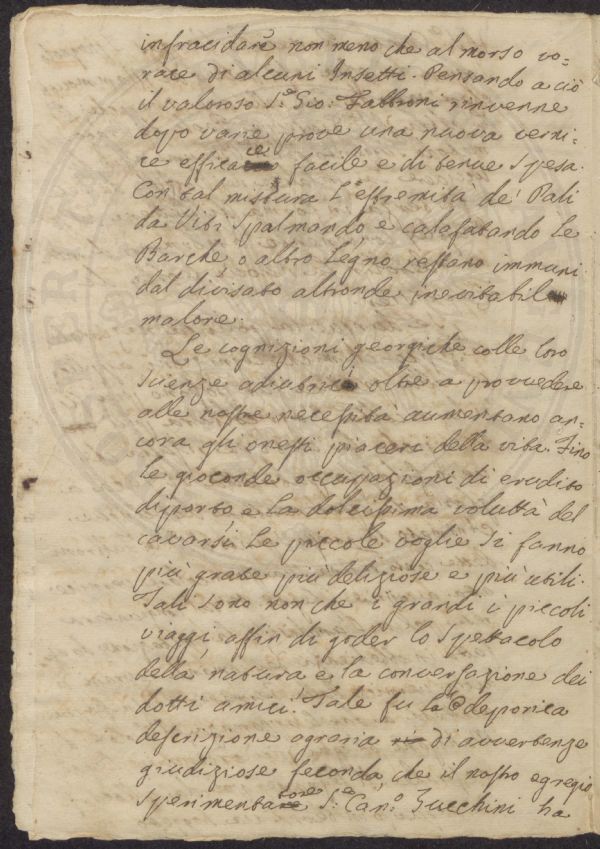 infracidare non meno che al morso vo=
race di alcuni Insetti. Pensando a ciò
il valoroso S.r Gio: Fabbroni rinvenne
dopo varie prove una nuova verni=
ce efficace facile e di tenue spesa.
Con tal mistura l'estremità de' Pali
da Viti spalmando e calafatando le
Barche, o altro Legno restano immuni
dal divisato altronde inevitabile
malore.
Le cognizioni georgiche colle loro
scienze adiutrici oltre a provvedere
alle nostre necessità aumentano an=
cora gli onesti piaceri della vita. Fino
le gioconde occupazioni di erudito
diporto e la dolcissima voluttà del
cavarsi le piccole voglie si fanno
più grate più deliziose e più utili.
Tali sono non che i grandi i piccoli
viaggi affin di goder lo spettacolo
della natura e la conversazione dei
dotti amici. Tale fu la odeporica
descrizione agraria di avvertenze
giudiziose feconda, che il nostro egregio
sperimentatore S.r Can.o Zucchini ha